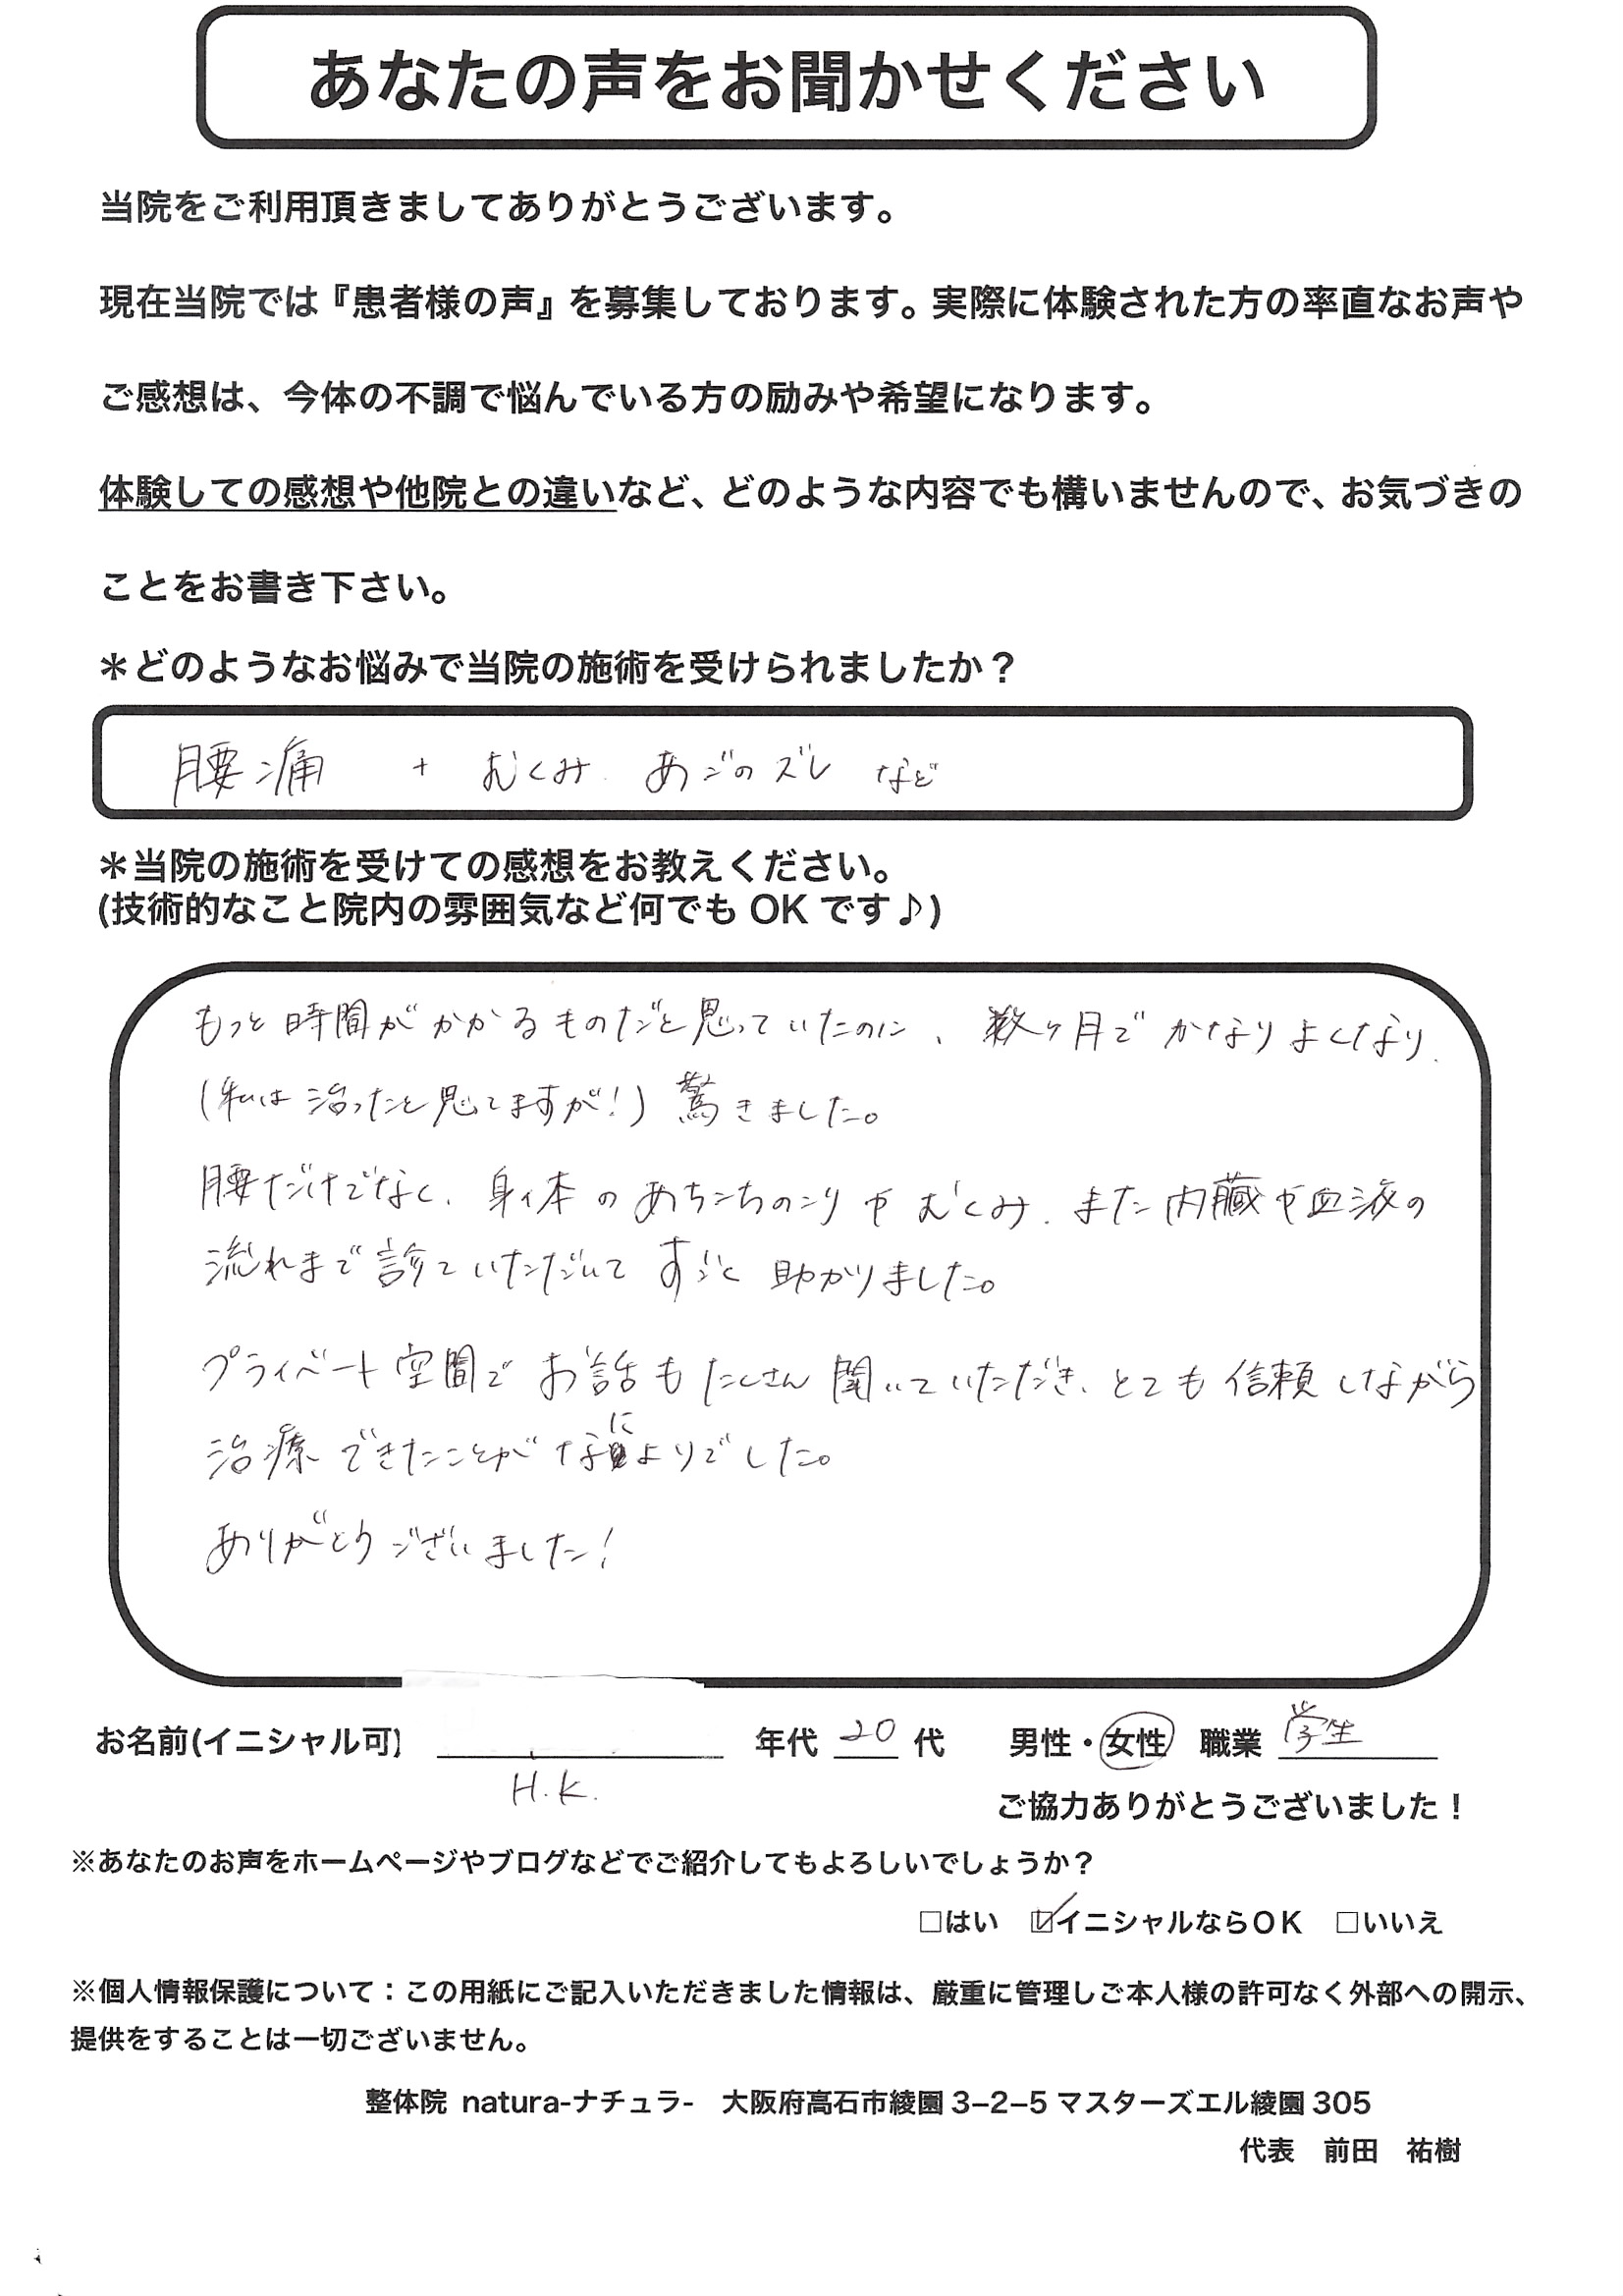 あなたの声をお聞かせください
当院をご利用頂きましてありがとうございます。
現在当院では『患者様の声』を募集しております。実際に体験された方の率直なお声や
ご感想は、今体の不調で悩んでいる方の励みや希望になります。
体験しての感想や他院との違いなど、どのような内容でも構いませんので、お気づきの
ことをお書き下さい。
＊どのようなお悩みで当院の施術を受けられましたか？
腰痛 + むくみ、あごのズレ など
＊当院の施術を受けての感想をお教えください。
(技術的なこと院内の雰囲気など何でもOKです♪)
もっと時間がかかるものだと思っていたのに、数ヶ月でかなりよくなり、
(私は治ったと思てますが!) 驚きました。
腰だけでなく、身体のあちこちのこりやむくみ、また内臓や血液の
流れまで診ていただいてすごく助かりました。
プライベート空間でお話もたくさん聞いていただき、とても信頼しながら
治療できたことがなによりでした。
ありがとうございました!
お名前(イニシャル可) 年代 20 代 男性・女性 職業 学生
H.K.
ご協力ありがとうございました！
※あなたのお声をホームページやブログなどでご紹介してもよろしいでしょうか？
□はい ☑イニシャルならOK □いいえ
※個人情報保護について：この用紙にご記入いただきました情報は、厳重に管理しご本人様の許可なく外部への開示、
提供をすることは一切ございません。
整体院 natura-ナチュラ- 大阪府高石市綾園3−2−5マスターズエル綾園305
代表 前田 祐樹